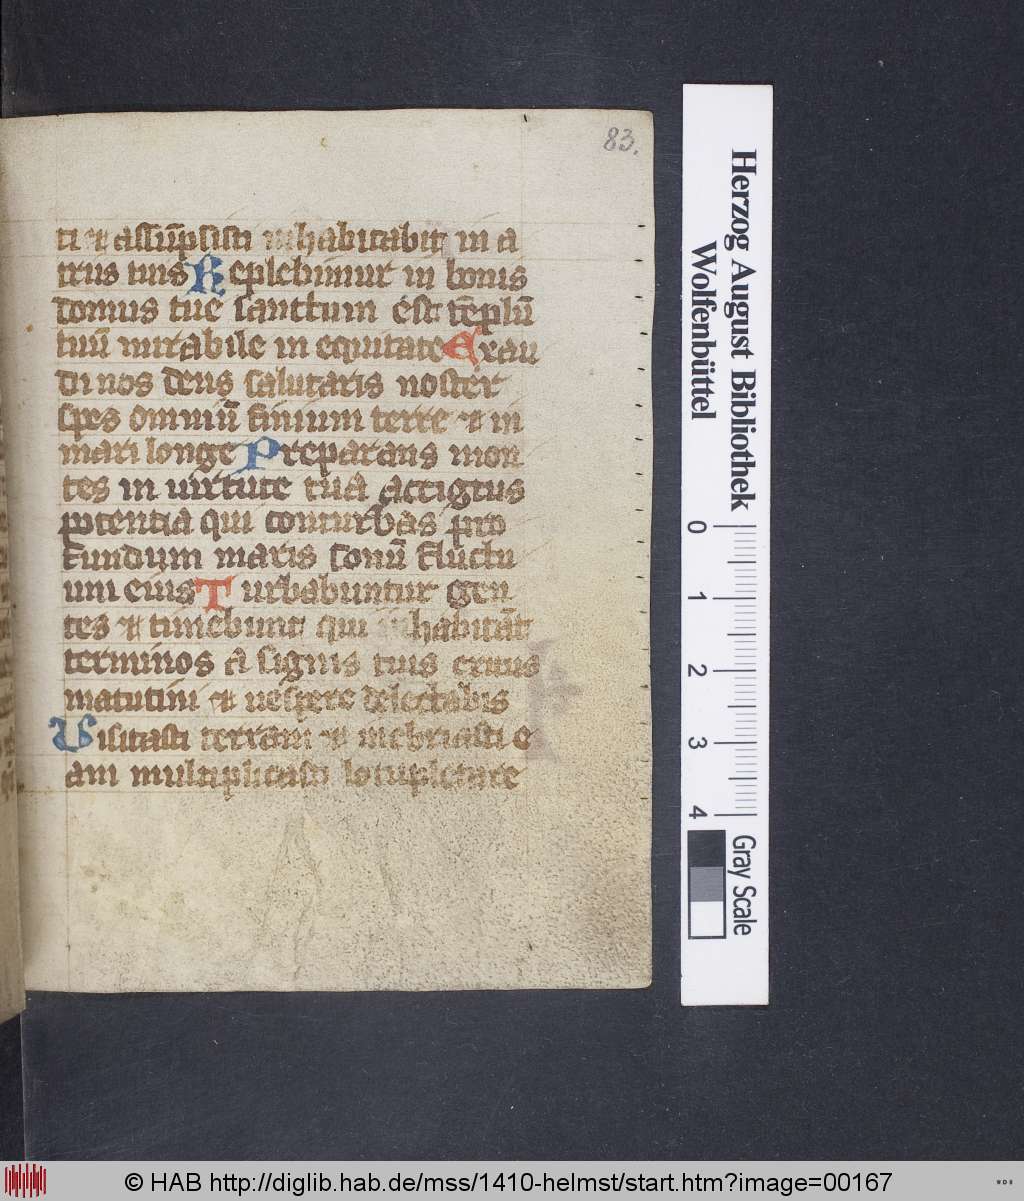 83.
ti et assūpsisti inhabitabit in a
triis tuis Replebimur in bonis
domus tue sanctum est templū
tuū mirabile in equitate Exau
di nos deus salutaris noster
spes omniū finium terre et in
mari longe Preparans mon
tes in virtute tua acctigtus
potentia qui conturbas pro
fundum maris sonū fluctu
um eius Turbabuntur gen
tes et timebunt qui inhabitāt
terminos a signis tuis exitus
matutini et vespere delectabis
Visitasti terram et inebriasti e
am multiplicasti locupletare
Herzog August Bibliothek
Wolfenbüttel
0 1 2 3 4
Gray Scale
© HAB http://diglib.hab.de/mss/1410-helmst/start.htm?image=00167